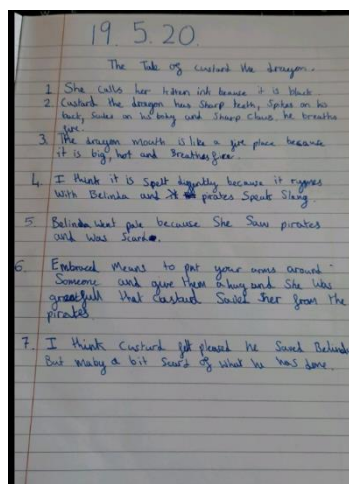 19.5.20.
The Tale of custard the dragon.
1 She calls her kitten ink because it is black
2. Custard the dragon has Sharp teeth, Spikes on his
back, Scales on his and Sharp Claws. he breaths
fire.
3. The dragon mouth is like a fire place because
it is big, hot and Breathes fire.
4. I think it is Spelt diffrently because it rymes
with Belinda and pirates Speak Slang.
5. Belinda Went pale because She Saw pirates
and Was Scard.
6. Embraced Means to put your arms around
Someone and give them a hug and She Was
greatfull that Custard Saves her from the
pirates
7. I think Custard felt pleased he Saved Belinda
But maby a bit Scard of what he has done.